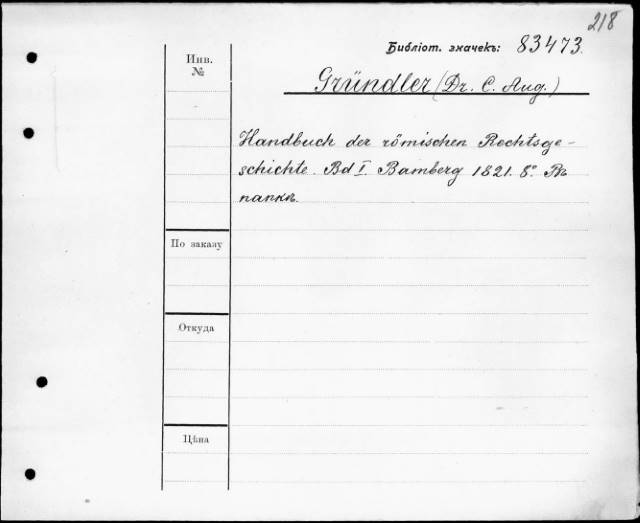 218
Библіот. значекъ: 83473.
Инв.
№
Gründler (Dr. C. Aug.)
Handbuch der römischen Rechtsge-
schichte. Bd I. Bamberg 1821. 8° Въ
папкѣ.
По заказу
Откуда
Цѣна